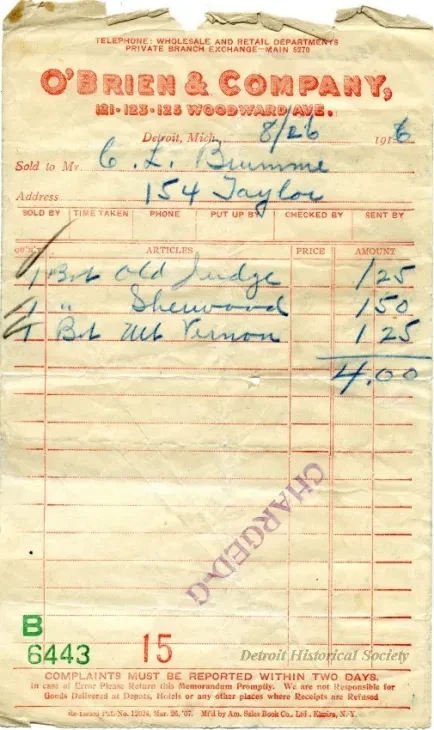 TELEPHONE: WHOLESALE AND RETAIL DEPARTMENTS
PRIVATE BRANCH EXCHANGE—MAIN 5270
O'BRIEN & COMPANY,
121-123-125 WOODWARD AVE.
Detroit, Mich. 8/26 1916
Sold to Mr. C. L. Brumme
Address 154 Taylor
SOLD BY TIME TAKEN PHONE PUT UP BY CHECKED BY SENT BY
QU'N'T'Y ARTICLES PRICE AMOUNT
1 Bot Old Judge 1 25
1 " Sherwood 1 50
1 Bot Mt Vernon 1 25
4.00
CHARGED-G
B
6443 15
Detroit Historical Society
COMPLAINTS MUST BE REPORTED WITHIN TWO DAYS.
In case of Error Please Return this Memorandum Promptly. We are not Responsible for
Goods Delivered at Depots, Hotels or any other places where Receipts are Refused
Re-issued Pat. No. 12624, Mar. 26, '07. M'f'd by Am. Sales Book Co., Ltd., Elmira, N.Y.